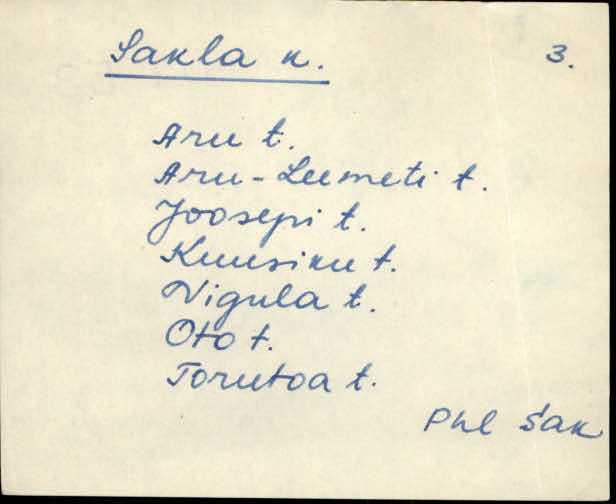 Sakla k. 3.
Aru t.
Aru-Leemeti t.
Joosepi t.
Kuusiku t.
Nigula t.
Oto t.
Torutoa t.
Phl Sak